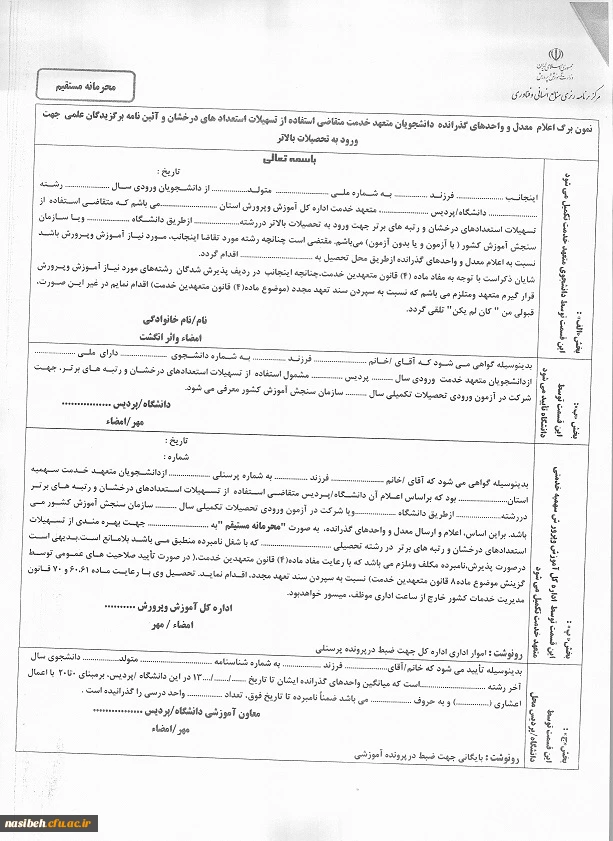 جمهوری اسلامی ایران
وزارت آموزش و پرورش
مرکز برنامه ریزی منابع انسانی و فناوری
محرمانه مستقیم
نمون برگ اعلام معدل و واحدهای گذرانده دانشجویان متعهد خدمت متقاضی استفاده از تسهیلات استعداد های درخشان و آئین نامه برگزیدگان علمی جهت
ورود به تحصیلات بالاتر
باسمه تعالی
بخش «الف»:
این قسمت توسط دانشجوی متعهد خدمت تکمیل می شود
تاریخ :
اینجانب .............. فرزند .............. به شماره ملی .............. متولد .............. از دانشجویان ورودی سال .......... رشته
.............. دانشگاه/پردیس .............. متعهد خدمت اداره کل آموزش وپرورش استان .............. می باشم که متقاضی استفاده از
تسهیلات استعدادهای درخشان و رتبه های برتر جهت ورود به تحصیلات بالاتر دررشته .............. ازطریق دانشگاه .............. ویا سازمان
سنجش آموزش کشور ( با آزمون و یا بدون آزمون) می‌باشم. مقتضی است چنانچه رشته مورد تقاضا اینجانب، مورد نیاز آموزش وپرورش باشد
نسبت به اعلام معدل و واحدهای گذرانده ازطریق محل تحصیل به .............. اقدام گردد.
شایان ذکراست با توجه به مفاد ماده (۴) قانون متعهدین خدمت،چنانچه اینجانب در ردیف پذیرش شدگان رشته‌های مورد نیاز آموزش وپرورش
قرار گیرم متعهد وملتزم می باشم که نسبت به سپردن سند تعهد مجدد (موضوع ماده(۴) قانون متعهدین خدمت) اقدام نمایم در غیر این صورت،
قبولی من " کان لم یکن" تلقی گردد.
نام/نام خانوادگی
امضاء واثر انگشت
بخش «ب»:
این قسمت توسط دانشگاه تایید می شود
بدینوسیله گواهی می شود که آقای /خانم .............. فرزند .............. به شماره دانشجوی .............. دارای ملی ..............
ازدانشجویان متعهد خدمت ورودی سال .......... پردیس .............. مشمول استفاده از تسهیلات استعدادهای درخشان و رتبه های برتر، جهت
شرکت در آزمون ورودی تحصیلات تکمیلی سال .......... سازمان سنجش آموزش کشور معرفی می شود.
دانشگاه/پردیس ................
مهر/امضاء
بخش «پ»:
این قسمت توسط اداره کل آموزش وپرورش سهمیه خدمتی
متعهد خدمت تکمیل می شود
تاریخ :
شماره :
بدینوسیله گواهی می شود که آقای /خانم .............. فرزند .............. به شماره پرسنلی .............. ازدانشجویان متعهد خدمت سهمیه
استان.............. بود که براساس اعلام آن دانشگاه/پردیس متقاضی استفاده از تسهیلات استعدادهای درخشان و رتبه های برتر
دررشته .............. ازطریق دانشگاه ..............ویا شرکت در آزمون ورودی تحصیلات تکمیلی سال .......... سازمان سنجش آموزش کشور می
باشد. براین اساس، اعلام و ارسال معدل و واحدهای گذرانده، به صورت "محرمانه مستقیم "به .............. جهت بهره مندی از تسهیلات
استعدادهای درخشان و رتبه های برتر در رشته تحصیلی .............. که با شغل نامبرده منطبق می باشد بلامانع است.بدیهی است
درصورت پذیرش،نامبرده مکلف وملزم می باشد که با رعایت مفاد ماده(۴) قانون متعهدین خدمت،( در صورت تأیید صلاحیت های عمومی توسط
گزینش موضوع ماده۸ قانون متعهدین خدمت) نسبت به سپردن سند تعهد مجدد، اقدام نمایند. تحصیل وی با رعایت ماده ۶۰،۶۱ و ۷۰ قانون
مدیریت خدمات کشور خارج از ساعت اداری موظف، میسور خواهدبود.
اداره کل آموزش وپرورش ..........
امضاء / مهر
رونوشت : اموار اداری اداره کل جهت ضبط درپرونده پرسنلی
بخش «ج»:
این قسمت توسط
دانشگاه/پردیس محل
بدینوسیله تأیید می شود که خانم/آقای.............. فرزند .............. به شماره شناسنامه .............. متولد.............. دانشجوی سال
آخر رشته ..............است که میانگین واحدهای گذرانده ایشان تا تاریخ ....../....../۱۳... در این دانشگاه /پردیس، برمبنای ۰تا۲۰ با اعمال
اعشاری (..............) و به حروف .............. می باشد ضمناً نامبرده تا تاریخ فوق، تعداد .............. واحد درسی را گذرانیده است .
معاون آموزشی دانشگاه/پردیس ................
مهر/امضاء
رونوشت : بایگانی جهت ضبط درپرونده آموزشی
nasibeh.cfu.ac.ir